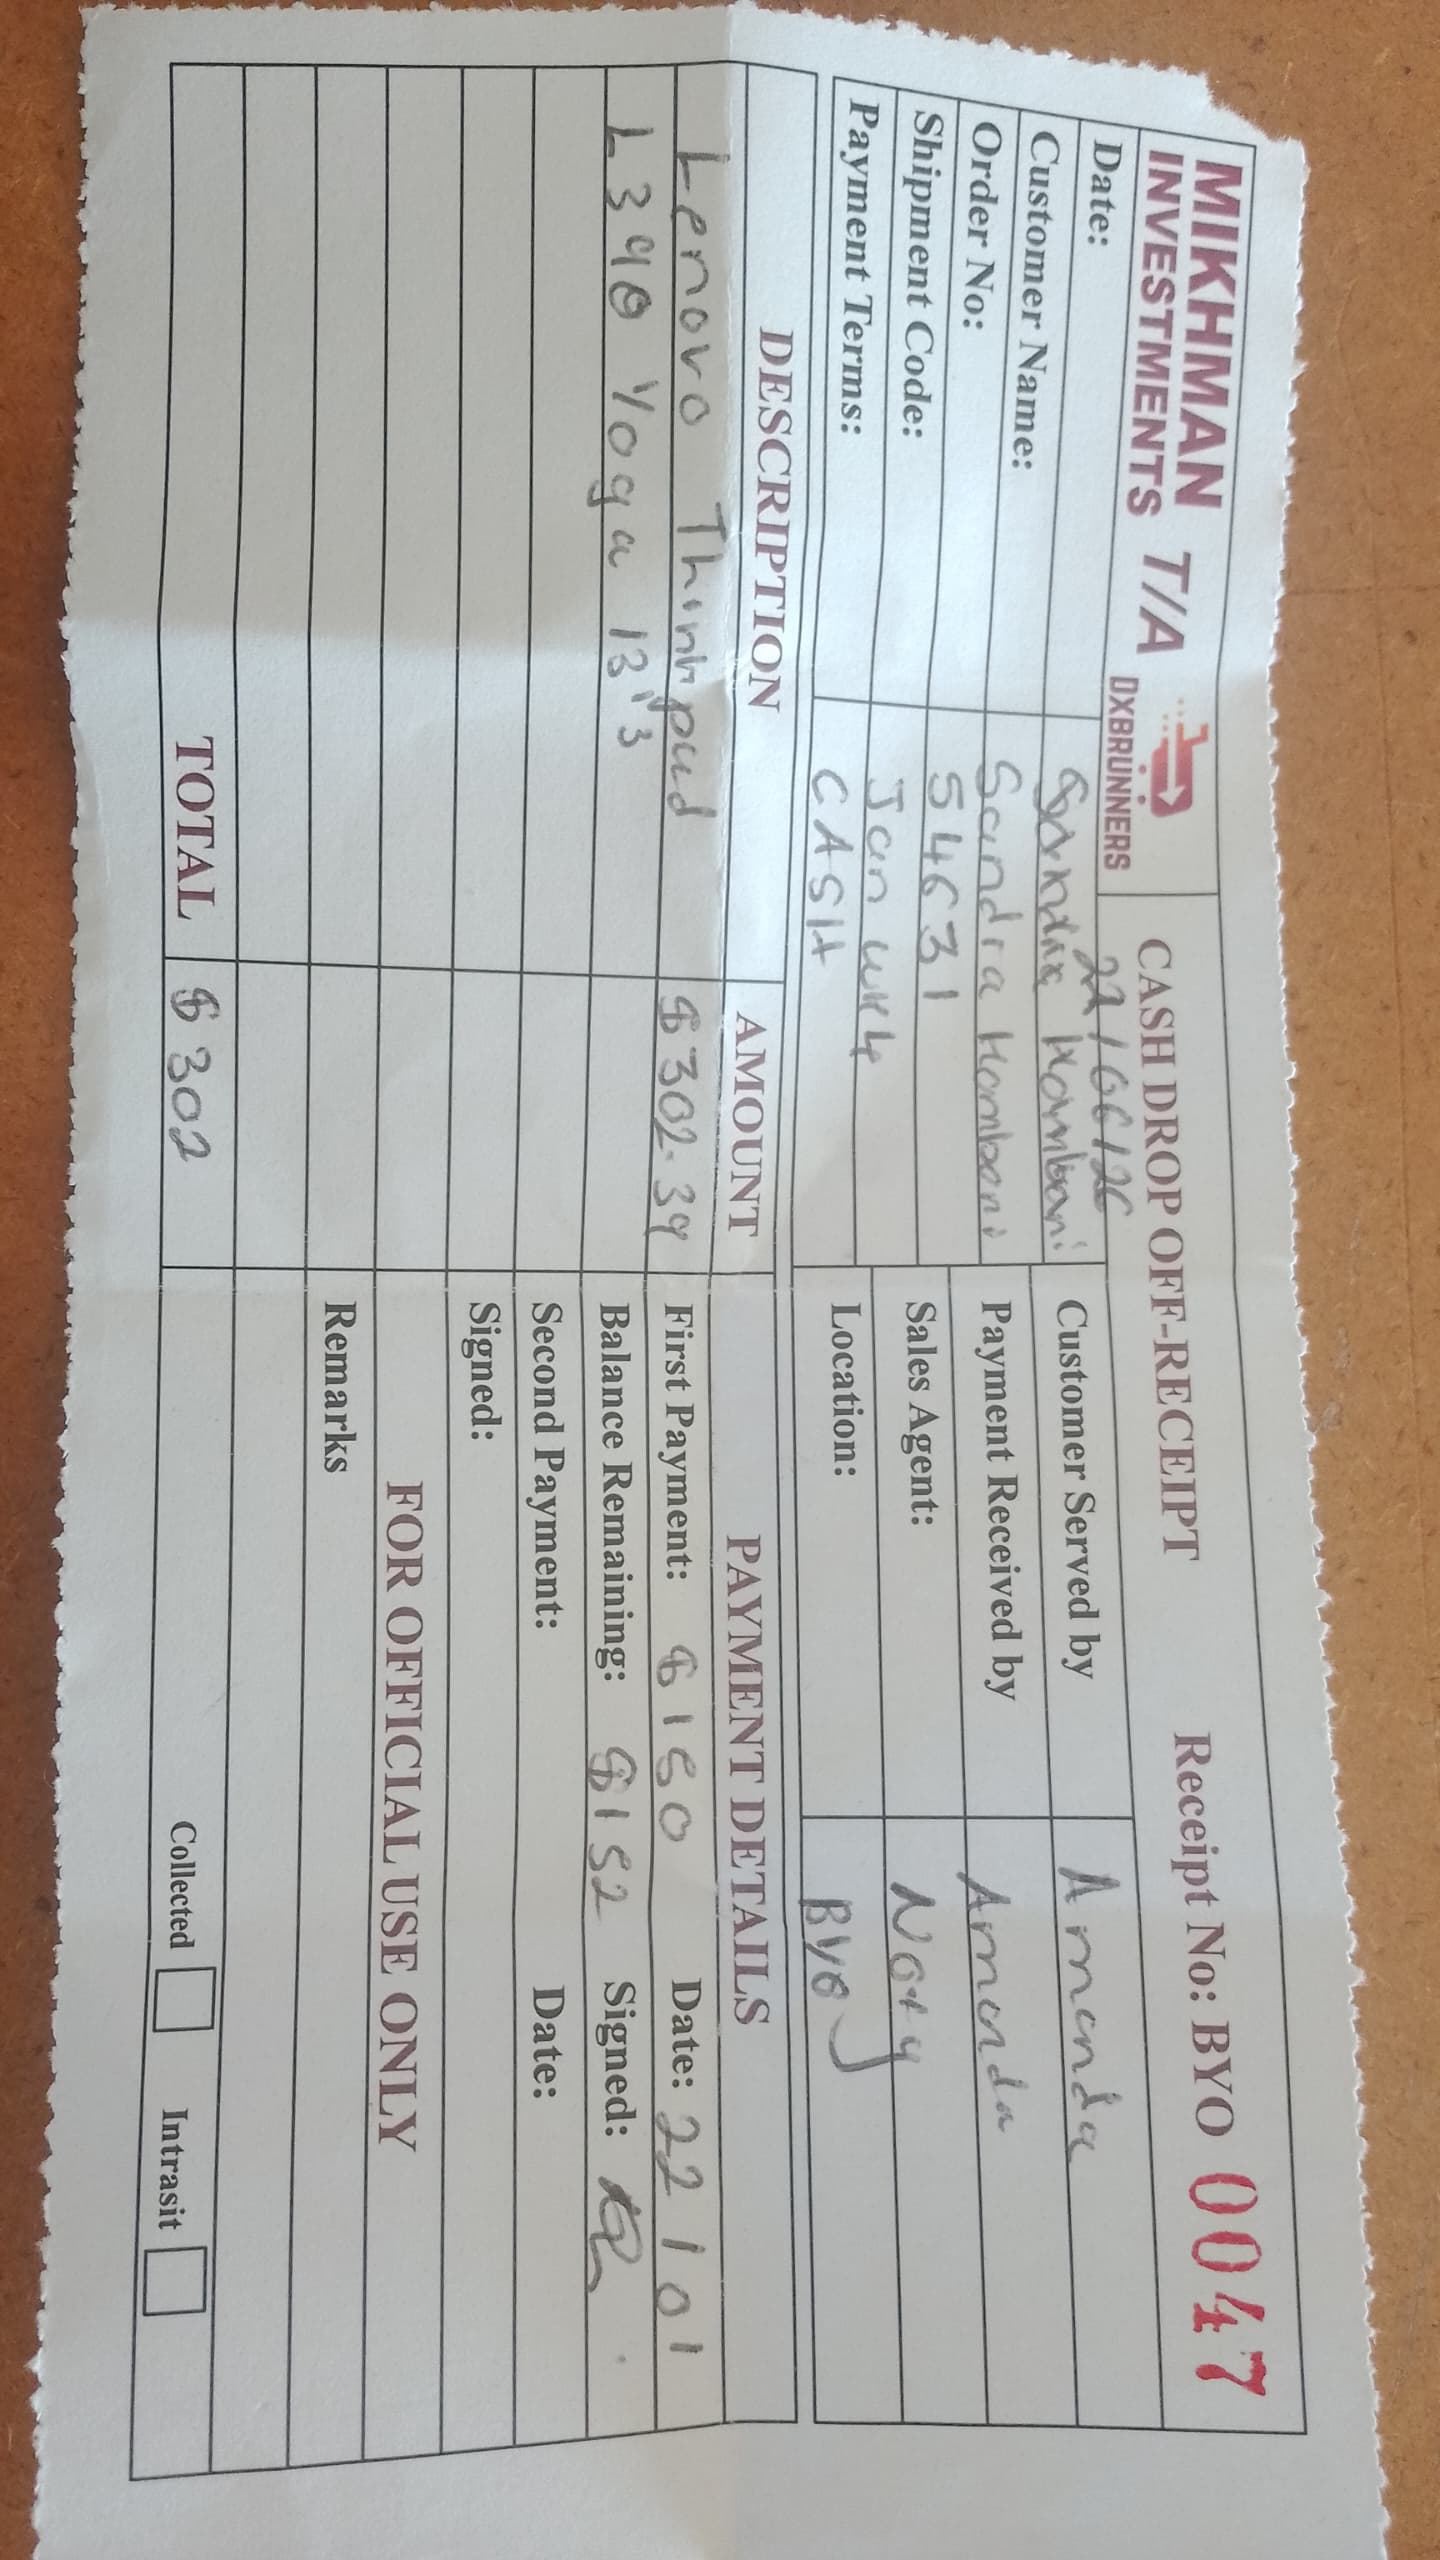 MIKHMAN INVESTMENTS T/A DXBRUNNERS CASH DROP OFF-RECEIPT Receipt No: BYO 0047
Date:
Customer Name: Kombani Customer Served by Amanda
Order No: Sandra Kombani Payment Received by Amanda
Shipment Code: 54631 Sales Agent:
Payment Terms: Jan wk4 Location: BYO
CASH
DESCRIPTION AMOUNT PAYMENT DETAILS
Lenovo Thinkpad $302.39 First Payment: $150 Date: 22/01
L390 Yoga 13"3 Balance Remaining: $152 Signed:
Second Payment: Date:
Signed:
FOR OFFICIAL USE ONLY
Remarks
TOTAL $302 Collected Intrasit